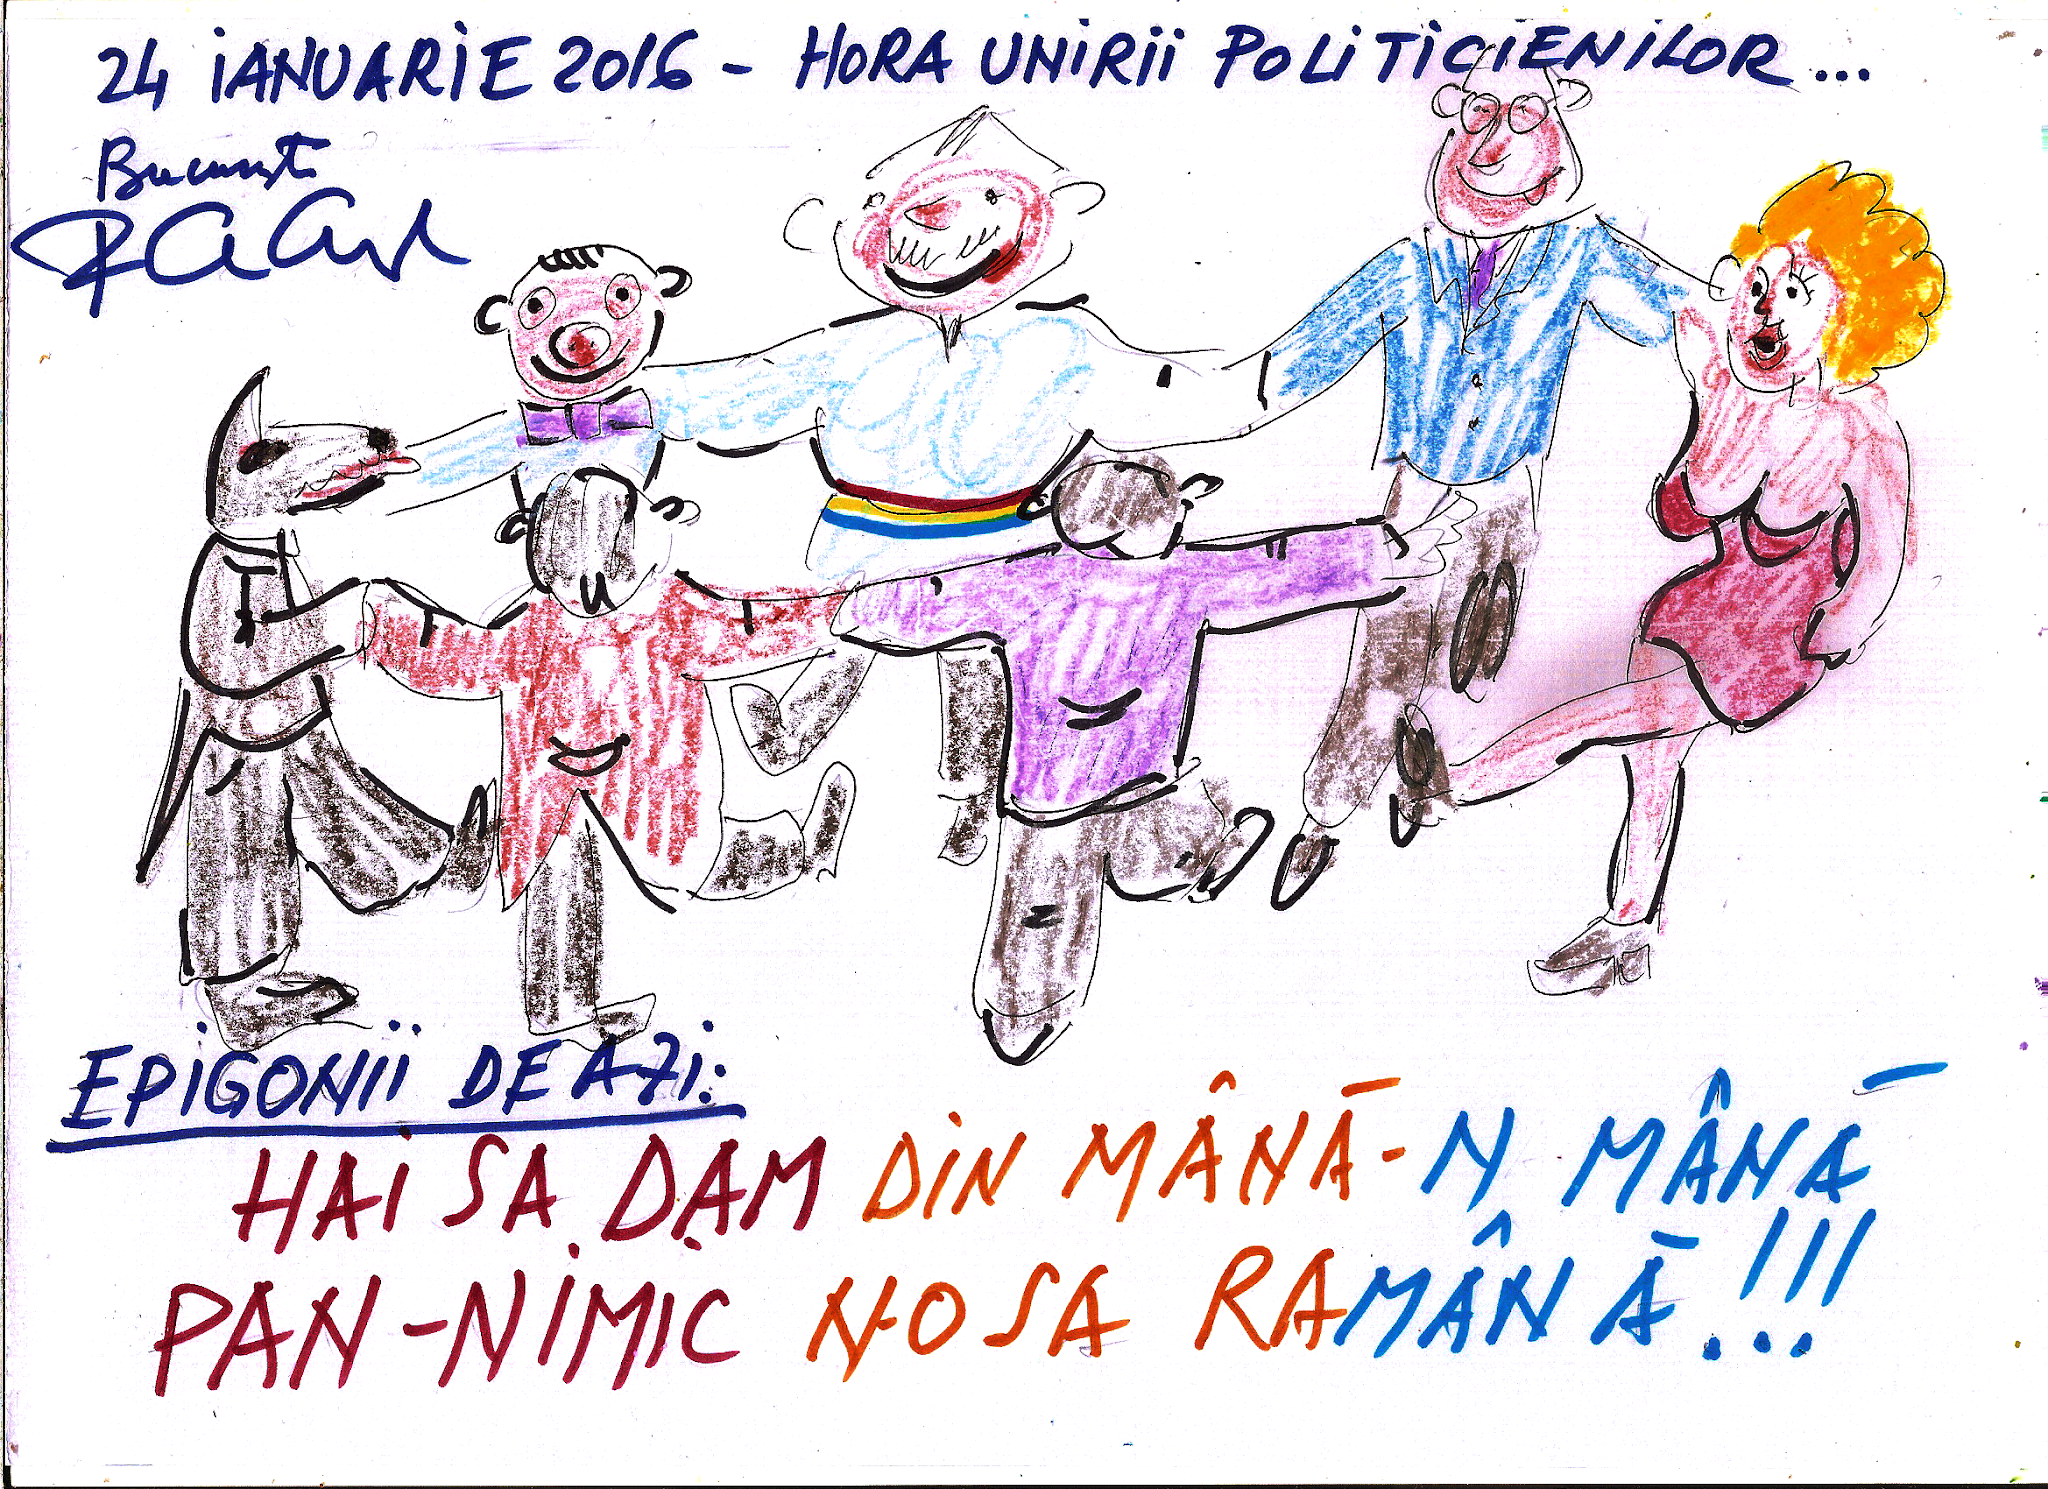 24 iANUARiE 2016 - HORA UNiRii POLiTiCiENiLOR...
București
EPiGONii DE AZi:
HAi SA DAM DiN MÂNĀ-N MÂNĀ
PAN-NiMiC N-O SA RAMÂNĀ!!!